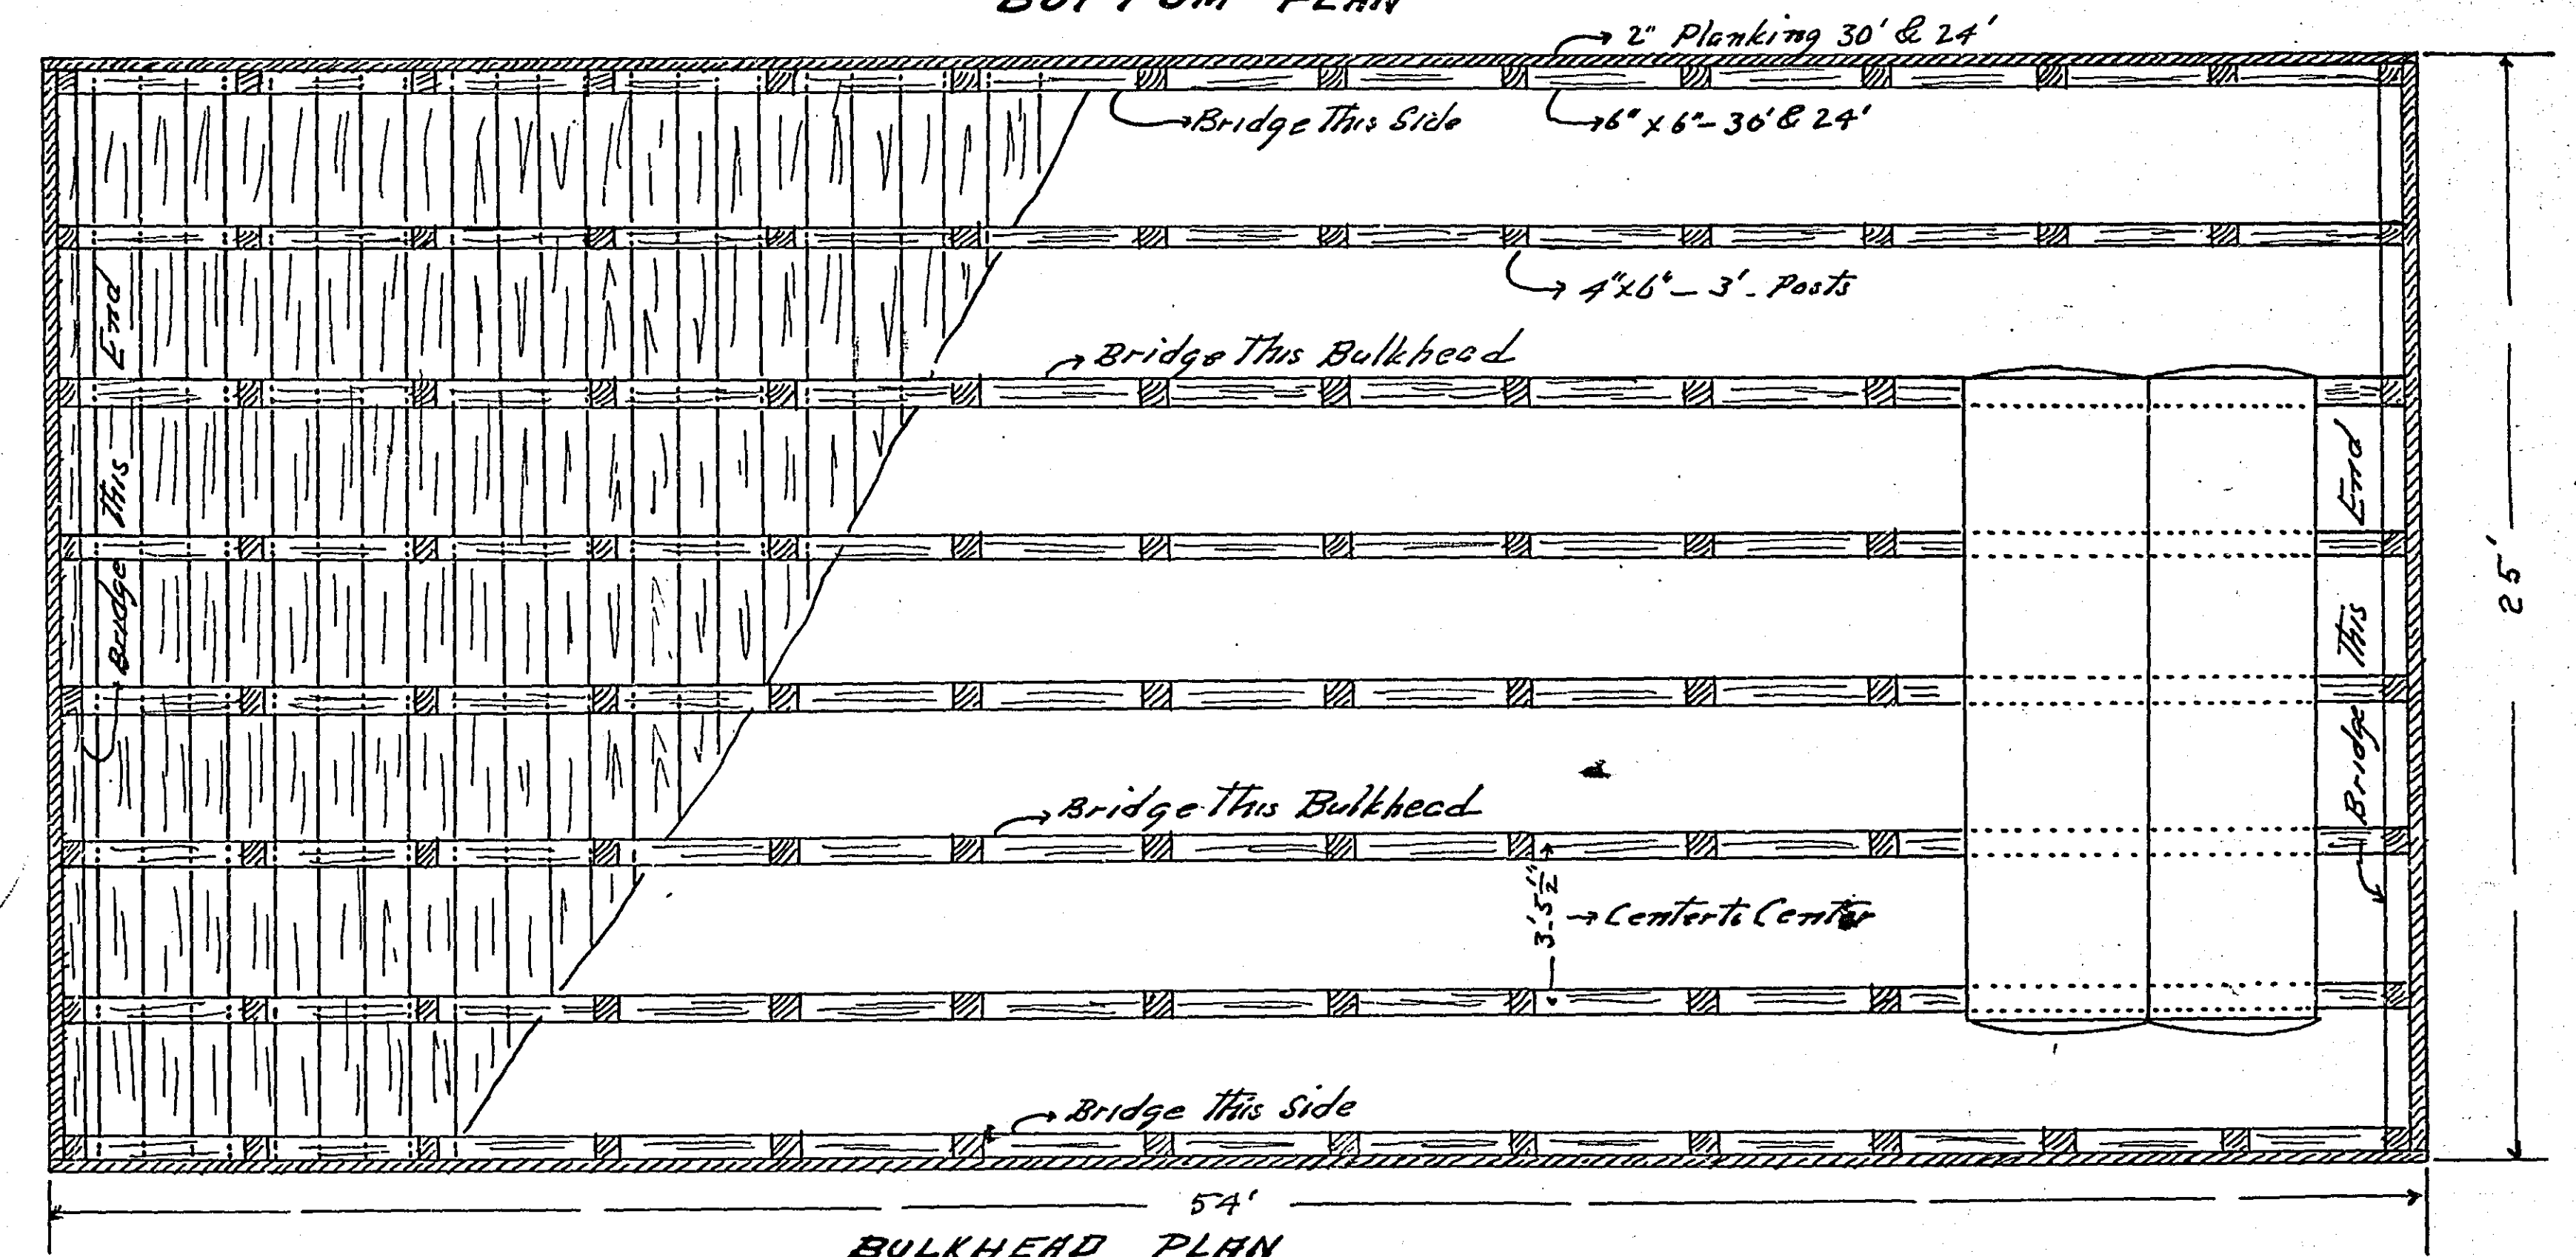 BOTTOM PLAN
2" Planking 30' & 24'
Bridge This Side
6" x 6" - 30' & 24'
4" x 6" - 3' - Posts
Bridge This Bulkhead
Bridge This End
Bridge This End
25'
Bridge This Bulkhead
3'-5½"
Center to Center
Bridge This Side
54'
BULKHEAD PLAN